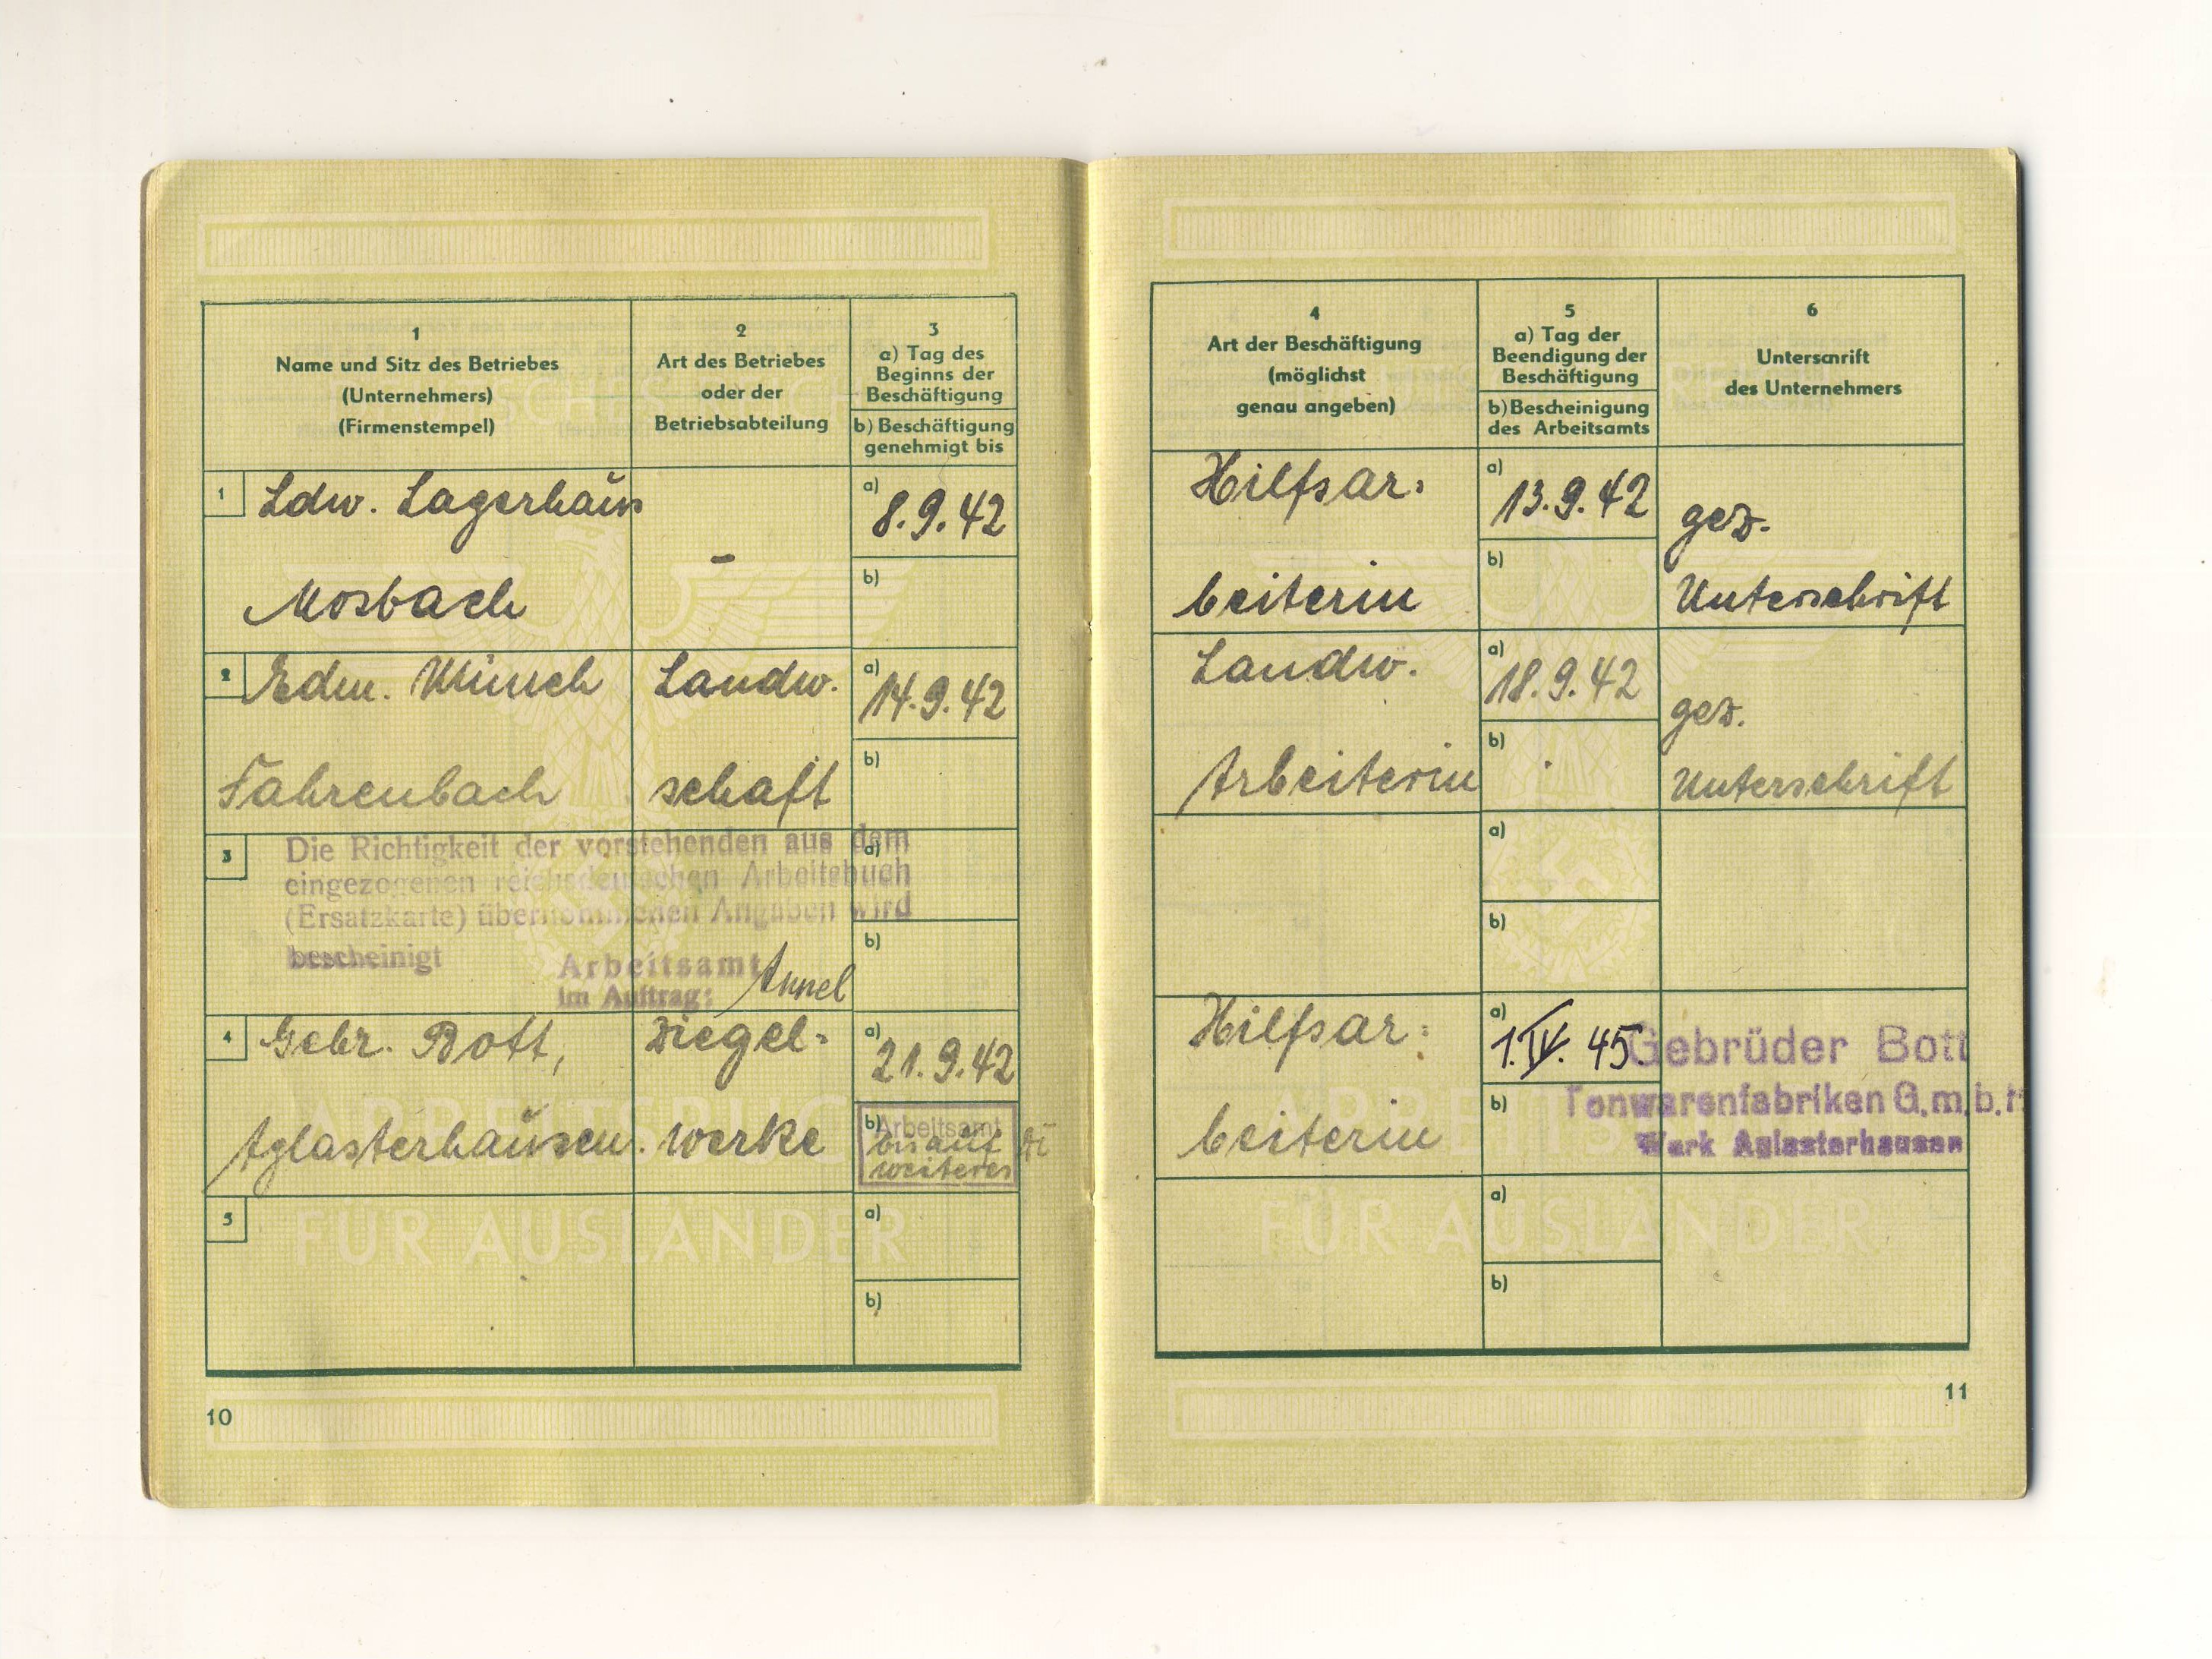 1
Name und Sitz des Betriebes
(Unternehmers)
(Firmenstempel)
2
Art des Betriebes
oder der
Betriebsabteilung
3
a) Tag des
Beginns der
Beschäftigung
b) Beschäftigung
genehmigt bis
1
Ldw. Lagerhaus
Mosbach
-
a)
8.9.42
b)
2
Edm. Münch
Fahrenbach
Landw.
schaft
a)
14.9.42
b)
3
Die Richtigkeit der vorstehenden aus dem
eingezogenen reichsdeutschen Arbeitsbuch
(Ersatzkarte) übernommenen Angaben wird
bescheinigt
Arbeitsamt
Im Auftrag:
a)
b)
4
Gebr. Bott,
Aglasterhausen.
Ziegel-
werke
a)
21.9.42
b)
Arbeitsamt
bis auf
weiteres
5
a)
b)
ARBEITSBUCH
FÜR AUSLÄNDER
10
4
Art der Beschäftigung
(möglichst
genau angeben)
5
a) Tag der
Beendigung der
Beschäftigung
b) Bescheinigung
des Arbeitsamts
6
Unterschrift
des Unternehmers
Hilfsar:
beiterin
a)
13.9.42
b)
gez.
Unterschrift
Landw.
Arbeiterin
a)
18.9.42
b)
gez.
Unterschrift
a)
b)
Hilfsar:
beiterin
a)
1.IV. 45.
b)
Gebrüder Bott
Tonwarenfabriken G.m.b.H
Werk Aglasterhausen
a)
b)
FÜR AUSLÄNDER
11